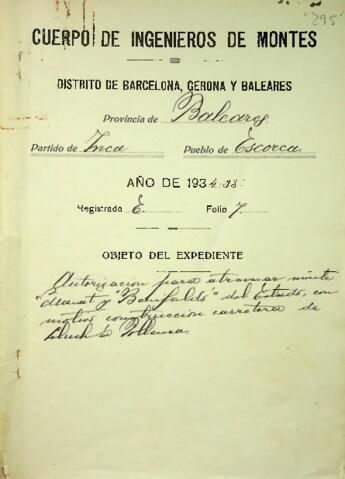 "295"
CUERPO DE INGENIEROS DE MONTES
DISTRITO DE BARCELONA, GERONA Y BALEARES
Provincia de Baleares
Partido de Inca Pueblo de Escorca
AÑO DE 1934-35
Registrado E. Folio 7.
OBJETO DEL EXPEDIENTE
Autorizacion para atravesar monte
y "Benifaldó" del Estado, con
motivo construccion carretera de
Lluch a Pollensa.